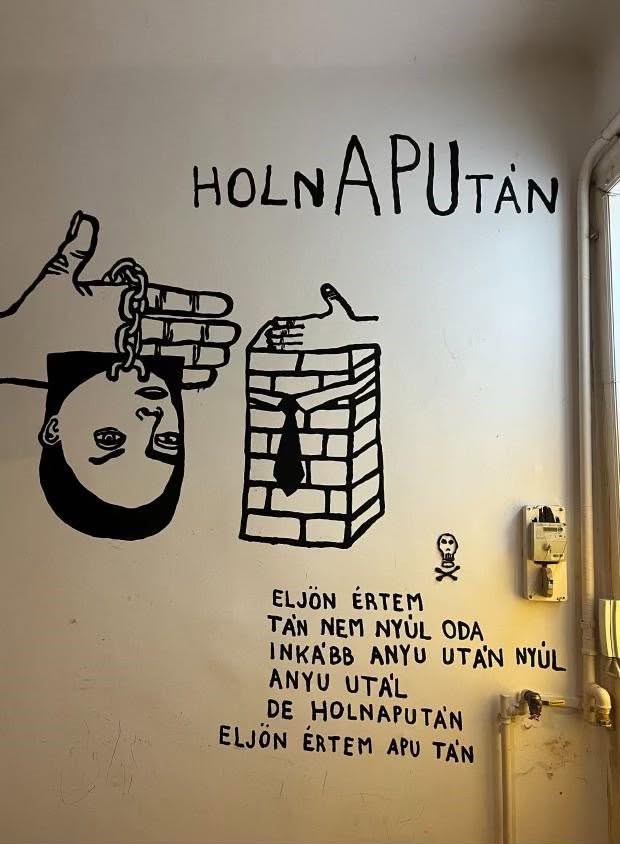 HOLNAPUTÁN
ELJÖN ÉRTEM
TÁN NEM NYÚL ODA
INKÁBB ANYU UTÁN NYÚL
ANYU UTÁL
DE HOLNAPUTÁN
ELJÖN ÉRTEM APU TÁN